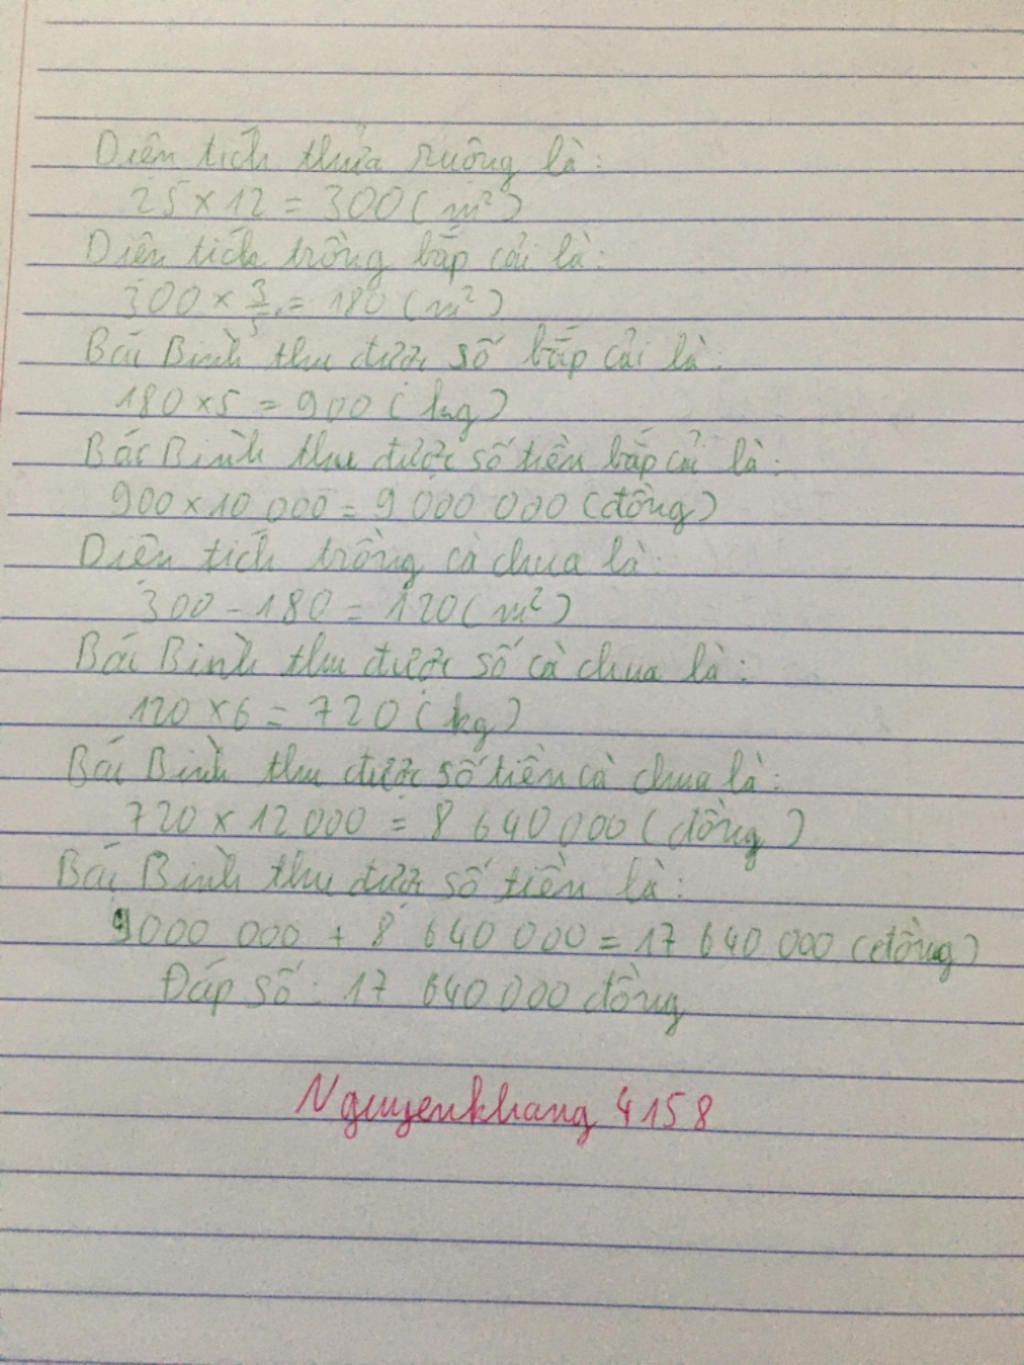 Diện tích thửa ruộng là:
25 x 12 = 300 (m²)
Diện tích trồng bắp cải là:
300 x 3/5 = 180 (m²)
Bác Bình thu được số bắp cải là:
180 x 5 = 900 (kg)
Bác Bình thu được số tiền bắp cải là:
900 x 10 000 = 9 000 000 (đồng)
Diện tích trồng cà chua là:
300 - 180 = 120 (m²)
Bác Bình thu được số cà chua là:
120 x 6 = 720 (kg)
Bác Bình thu được số tiền cà chua là:
720 x 12 000 = 8 640 000 (đồng)
Bác Bình thu được số tiền là:
9000 000 + 8 640 000 = 17 640 000 (đồng)
Đáp số: 17 640 000 đồng
Nguyenkhang 4158